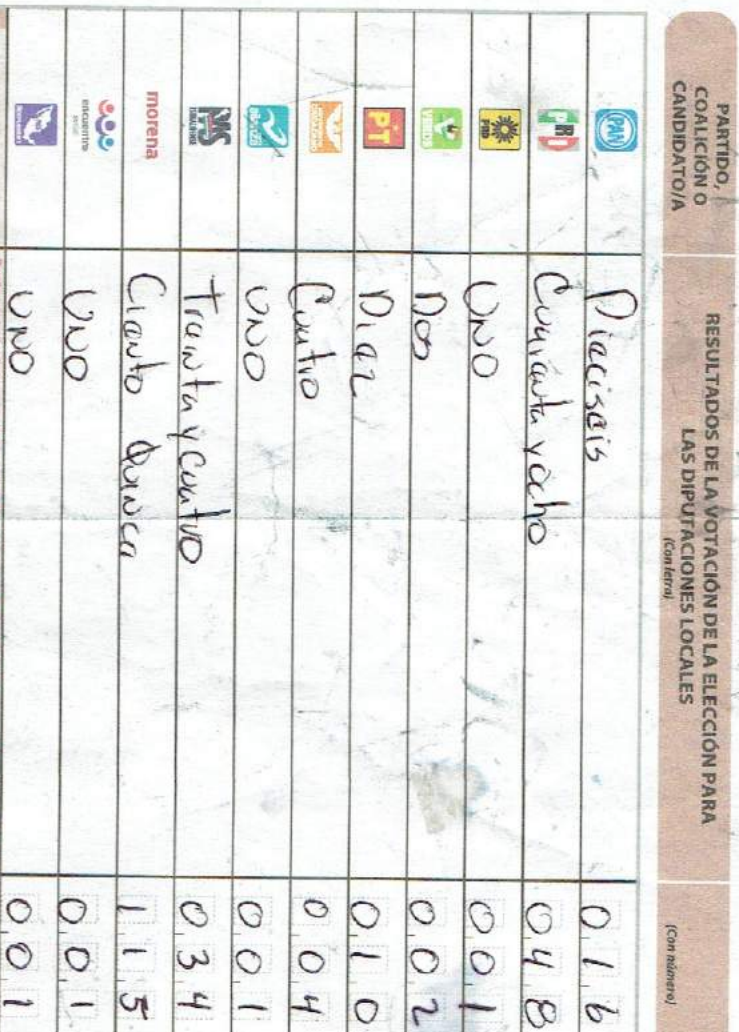 PARTIDO, COALICIÓN O CANDIDATO/A
RESULTADOS DE LA VOTACIÓN DE LA ELECCIÓN PARA LAS DIPUTACIONES LOCALES
(Con letra)
(Con número)
PAN Dieciseis 0 1 6
PRI Cuarenta y ocho 0 4 8
PRD UNO 0 0 1
VERDE Dos 0 0 2
PT Diez 0 1 0
Cuatro 0 0 4
alianza UNO 0 0 1
PAS SINALOENSE Treinta y Cuatro 0 3 4
morena Ciento Quince 1 1 5
encuentro social UNO 0 0 1
UNO 0 0 1